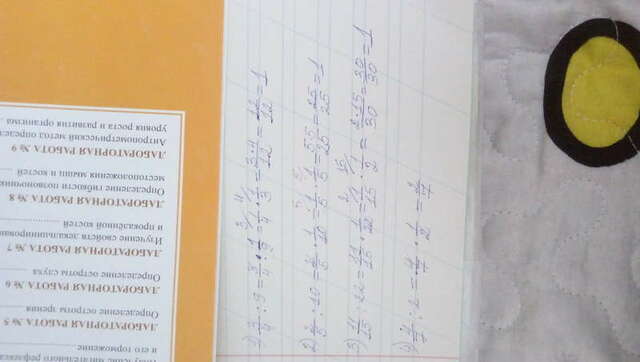 и его торможение
ЛАБОРАТОРНАЯ РАБОТА № 5
Определение остроты зрения
ЛАБОРАТОРНАЯ РАБОТА № 6
Определение остроты слуха
ЛАБОРАТОРНАЯ РАБОТА № 7
Изучение свойств декальцинирован
и прокалённой костей
ЛАБОРАТОРНАЯ РАБОТА № 8
Определение гибкости позвоночник
местоположения мышц и костей
ЛАБОРАТОРНАЯ РАБОТА № 9
Антропометрический метод определ
уровня роста и развития организма
1) 3/4 : 9 = 3/4 · 1/9 = 1/4 · 1/3 = 3·4/12 = 12/12 = 1
2) 2/5 : 10 = 2/5 · 1/10 = 1/5 · 1/5 = 5·5/25 = 25/25 = 1
3) 11/15 : 22 = 11/15 · 1/22 = 1/15 · 1/2 = 2·15/30 = 30/30 = 1
4) 4/7 : 2 = 4/7 · 1/2 = 2/7